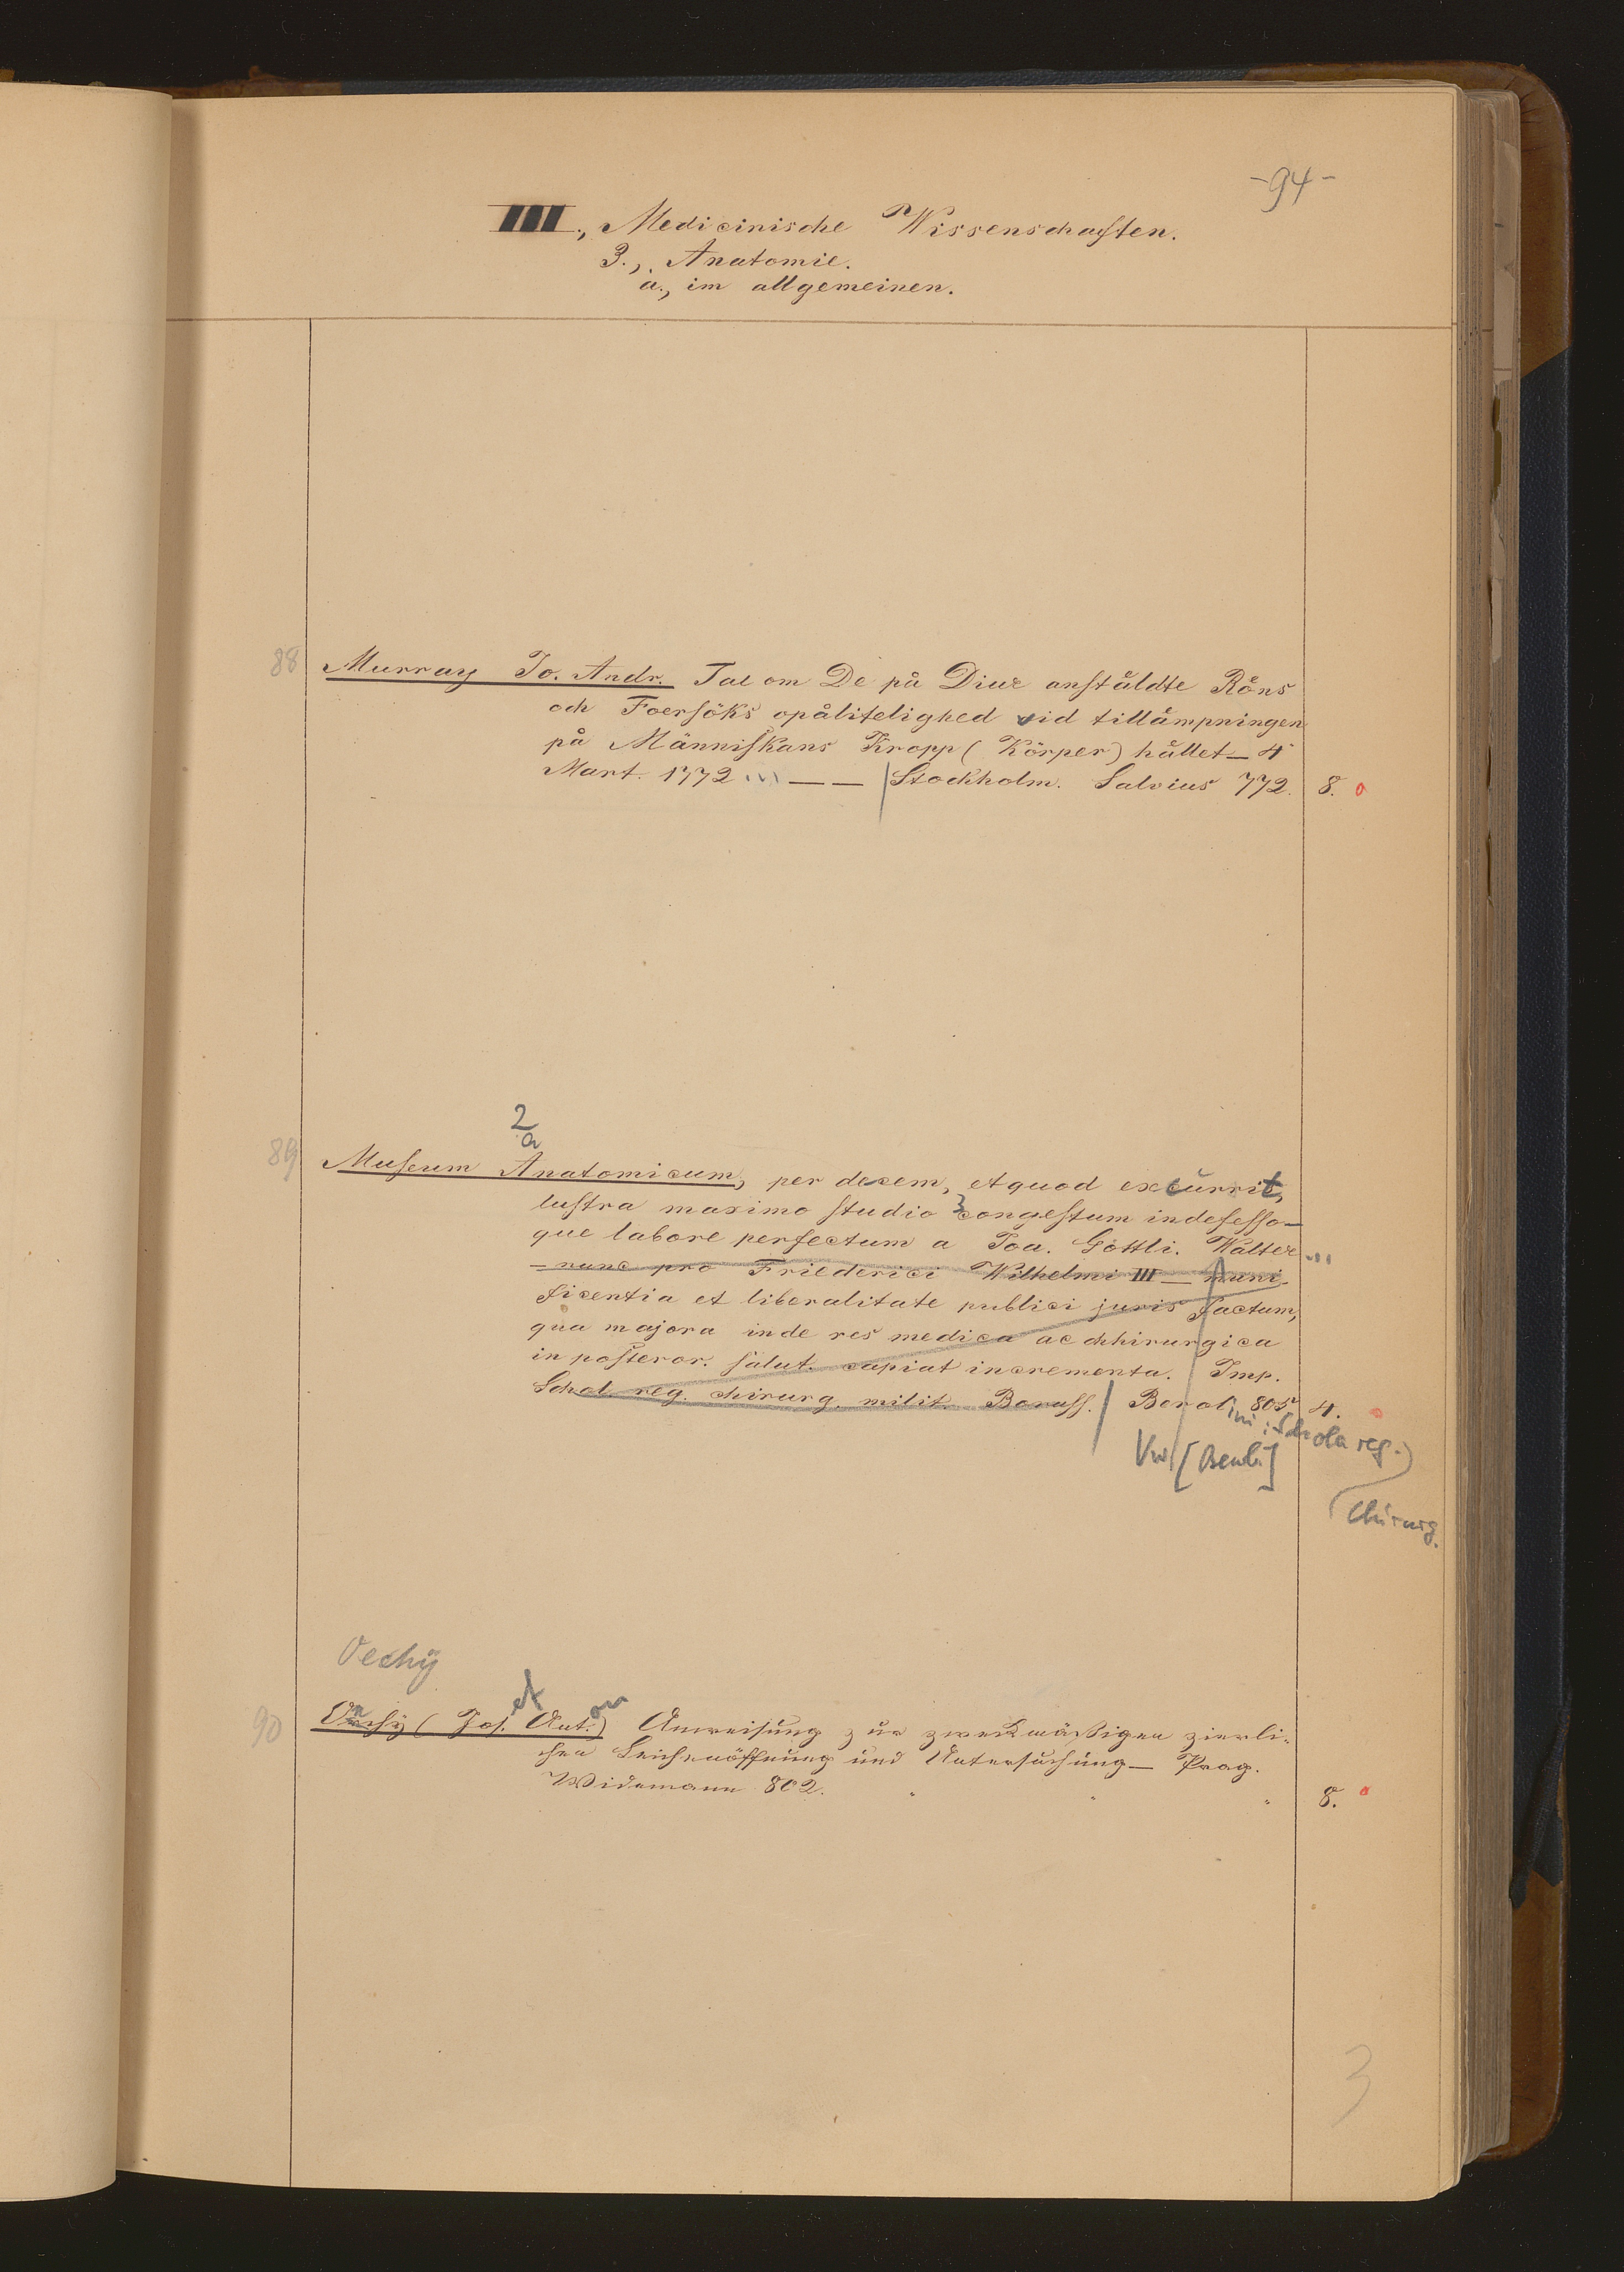 -94-
III., Medicinische Wissenschaften.
3., Anatomie.
a., im allgemeinen.
88
Murray Jo. Andr. Tal om De på Diur anståldte Röns
och Foersöks opålitelighed vid tillämpningen
på Människans Kropp (Körper) hållet – 4
Mart. 1772 ... — — | Stockholm. Salvius 772. 8.
2
a
89
Museum Anatomicum, per decem, et quod excurrit,
lustra maximo studio congestum indefesso-
que labore perfectum a Joa. Gottli. Walter ...
– nunc pro Friederici Wilhelmi III – muni-
ficentia et liberalitate publici juris factum,
qua majora inde res medica ac chhirurgica
in posteror. salut. capiat incrementa. Imp.
Schol. reg. chirurg. milit. Boruss. | Berolini: Schola reg. 805 4.
Vw [Berlin]
Chirurg.
Oechÿ
et on
90
Oechÿ (Jos. Ant.) Anweisung zur zweckmäßigen zierli-
chen Leichenöffnung und Untersuchung – Prag.
Widemann 802. 8.
3